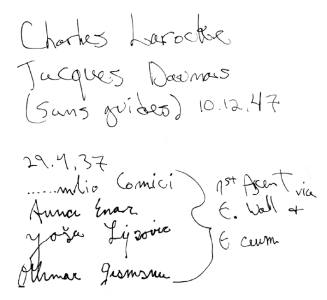 Charles Larocke
Jacques Daunais
(sans guides) 10.12.47
29.4.37
......milio Comici
Anna Enar
Joža Lipovic
Othmar Gismann
1st Ascent via
E. Wall &
E